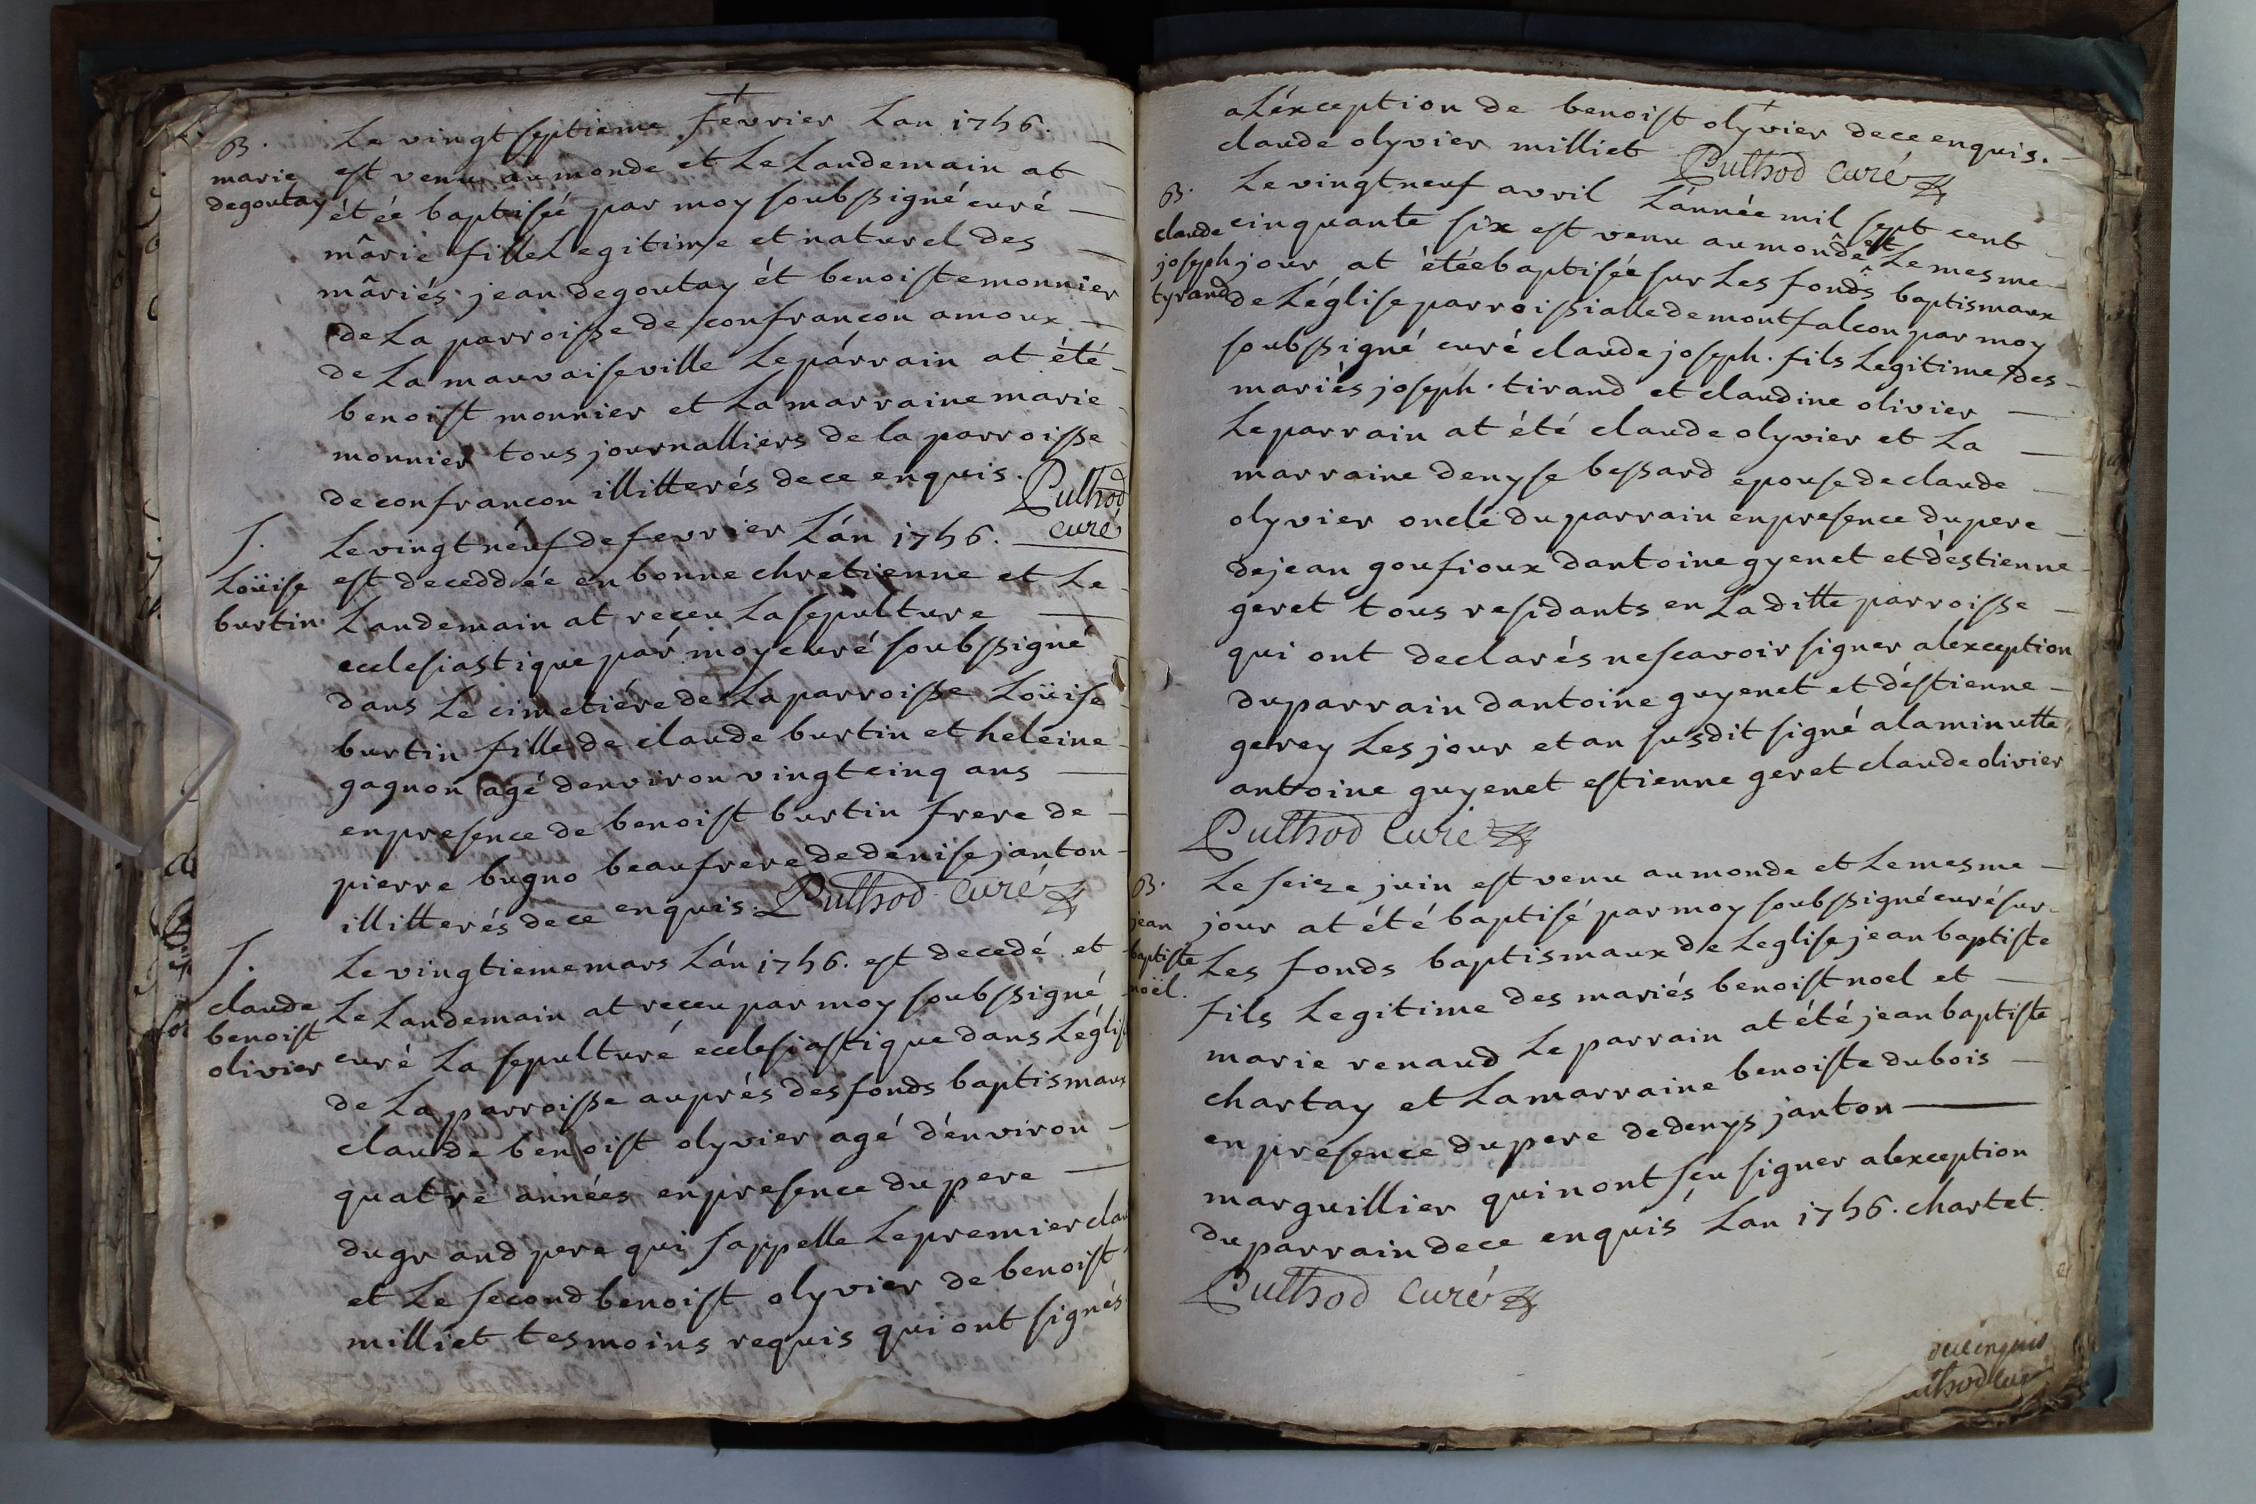 B.
marie
degoutay
Le vingt septieme fevrier Lan 1756.
est venu au monde et Le Landemain at
étée baptisée par moy soubssigné curé
mârie fille Legitime et naturel des
mâriés jean degoutay ét benoiste monnier
de La parroisse de confrancon amoux
de La mauvaiseville Le párrain at été
benoist monnier et La marraine marie
monnier tous journalliers de la parroisse
de confrancon illitterés de ce enquis. Puthod
curé
S.
Loüise
burtin
Le vingt néuf de fevrier Lán 1756.
est deceddée en bonne chretienne et Le
Landemain at receu La sepulture
ecclesiastique pár moy curé soubssigné
dans Le cimetiére de La parroisse Loüise
burtin fille de claude burtin et heleine
gagnon agé denviron vingt cinq ans
en presence de benoist burtin frere de
pierre bugno beaufrere de denise janton
illitterés de ce enquis. Puthod Curé
S.
claude
benoist
olivier
Le vingtieme mars Lán 1756. est decedé et
Le Landemain at receu par moy soubssigné
curé La sepulturé ecclesiastique dans Léglise
de La parroisse auprés des fonds baptismaux
claude benoist olyvier agé d'environ
quatre années en presence du pere
du grand pere qui sappelle Le premier clau
et Le second benoist olyvier de benoist
milliet tesmoins requis qui ont signés
a Léxception de benoist olyvier de ce enquis.
claude olyvier milliet Puthod Curé
B.
claude
joseph
tyrand
Le vingt neuf avril L'année mil sept cent
cinquante six est venu au mondê et Le mesme
jour at étée baptisée sur Les fonds baptismaux
de Léglise parroissialle de montfalcon par moy
soubssigné curé claude joseph. fils Legitime des
mariés joseph. tirand et claudine olivier
Le parrain at été claude olyvier et La
marraine denyse bessard epouse de claude
olyvier oncle du parrain en presence du pere
de jean goufioux dantoine gyenet et d'estienne
geret tous residants en La ditte parroisse
qui ont declarés ne scavoir signer alexception
du parrain dantoine guyenet et déstienne
gerey Les jour et an susdit signé a la minutte
antoine guyenet estienne geret claude olivier
Puthod Curé
B.
jean
baptiste
noël.
Le seize juin est venu au monde et Le mesme
jour at été baptisé par moy soubssigné curé sur
Les fonds baptismaux de Leglise jean baptiste
fils Legitime des mariés benoist noel et
marie renaud Le parrain at été jean baptiste
chartay et La marraine benoiste dubois
en presence du pere de denys janton
marguillier qui nont sceu signer alexception
du parrain de ce enquis Lan 1756. chartet.
Puthod Curé
de ce enquis